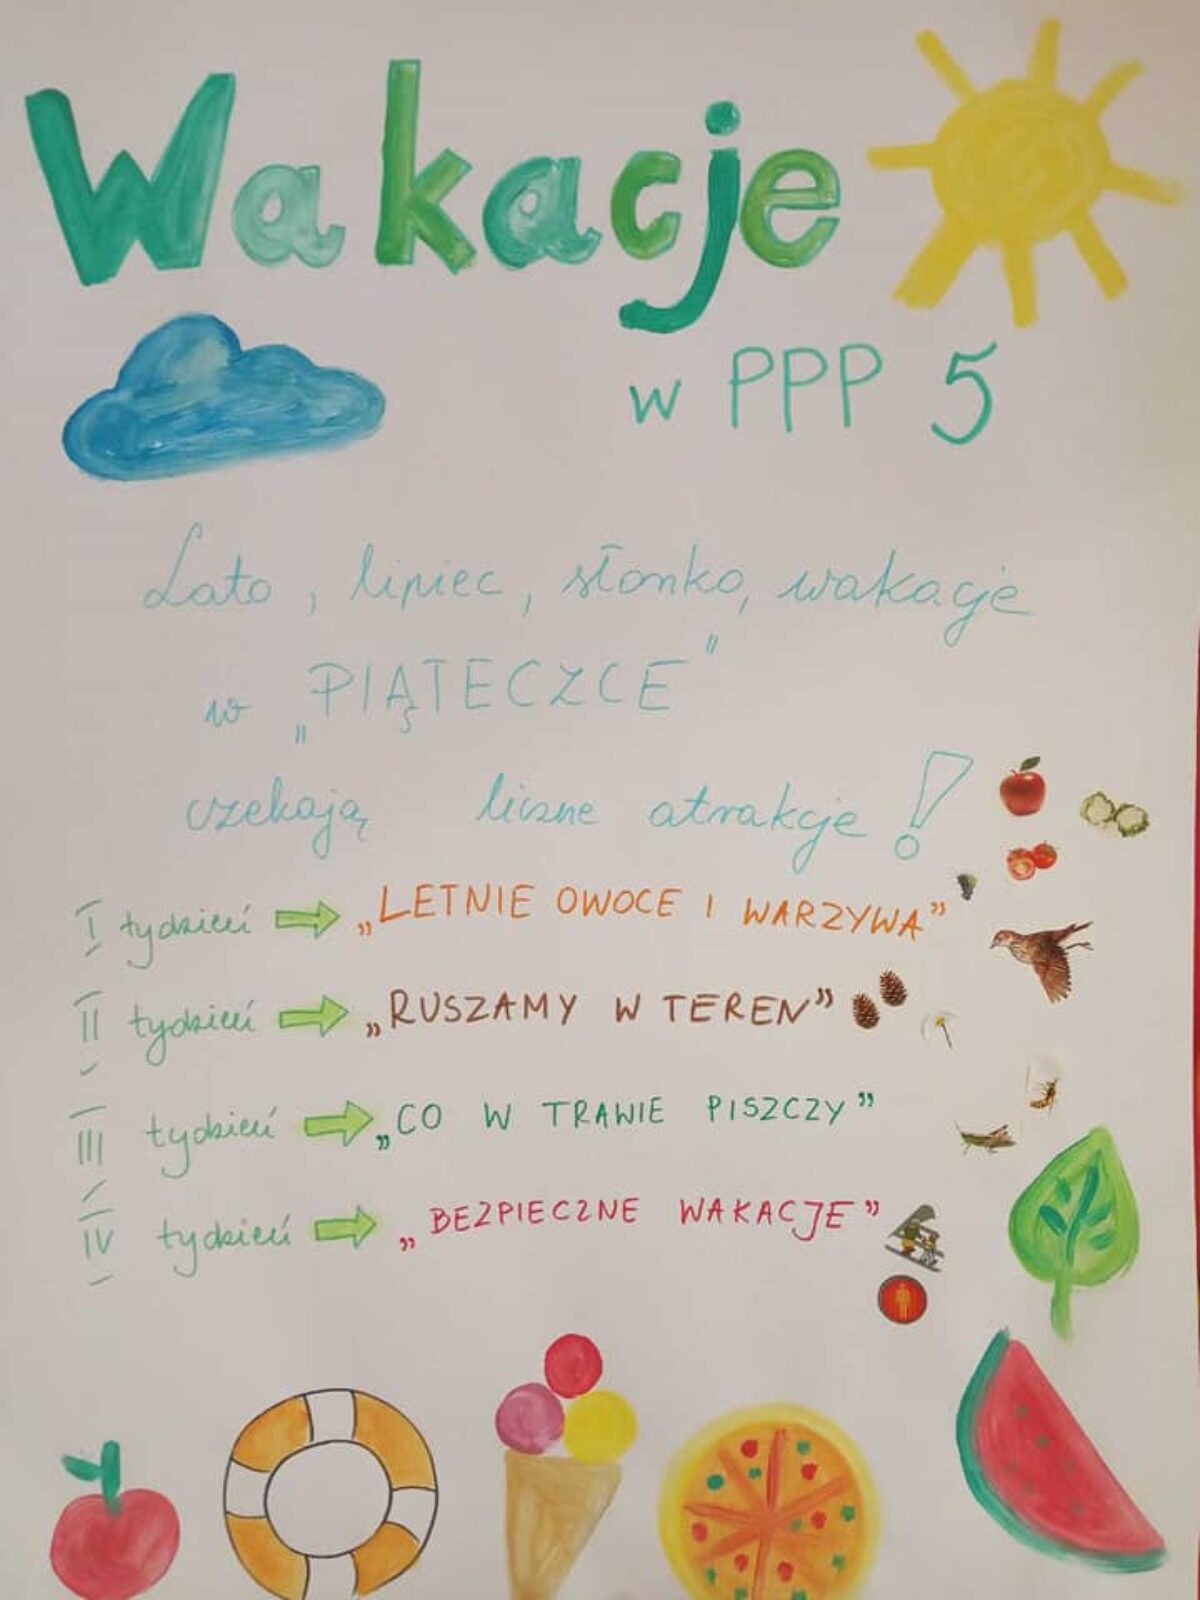 Wakacje
w PPP 5
Lato, lipiec, słonko, wakacje
w „PIĄTECZCE"
czekają liczne atrakcje!
I tydzień ⇒ „LETNIE OWOCE I WARZYWA”
II tydzień ⇒ „RUSZAMY W TEREN”
III tydzień ⇒ „CO W TRAWIE PISZCZY”
IV tydzień ⇒ „BEZPIECZNE WAKACJE”